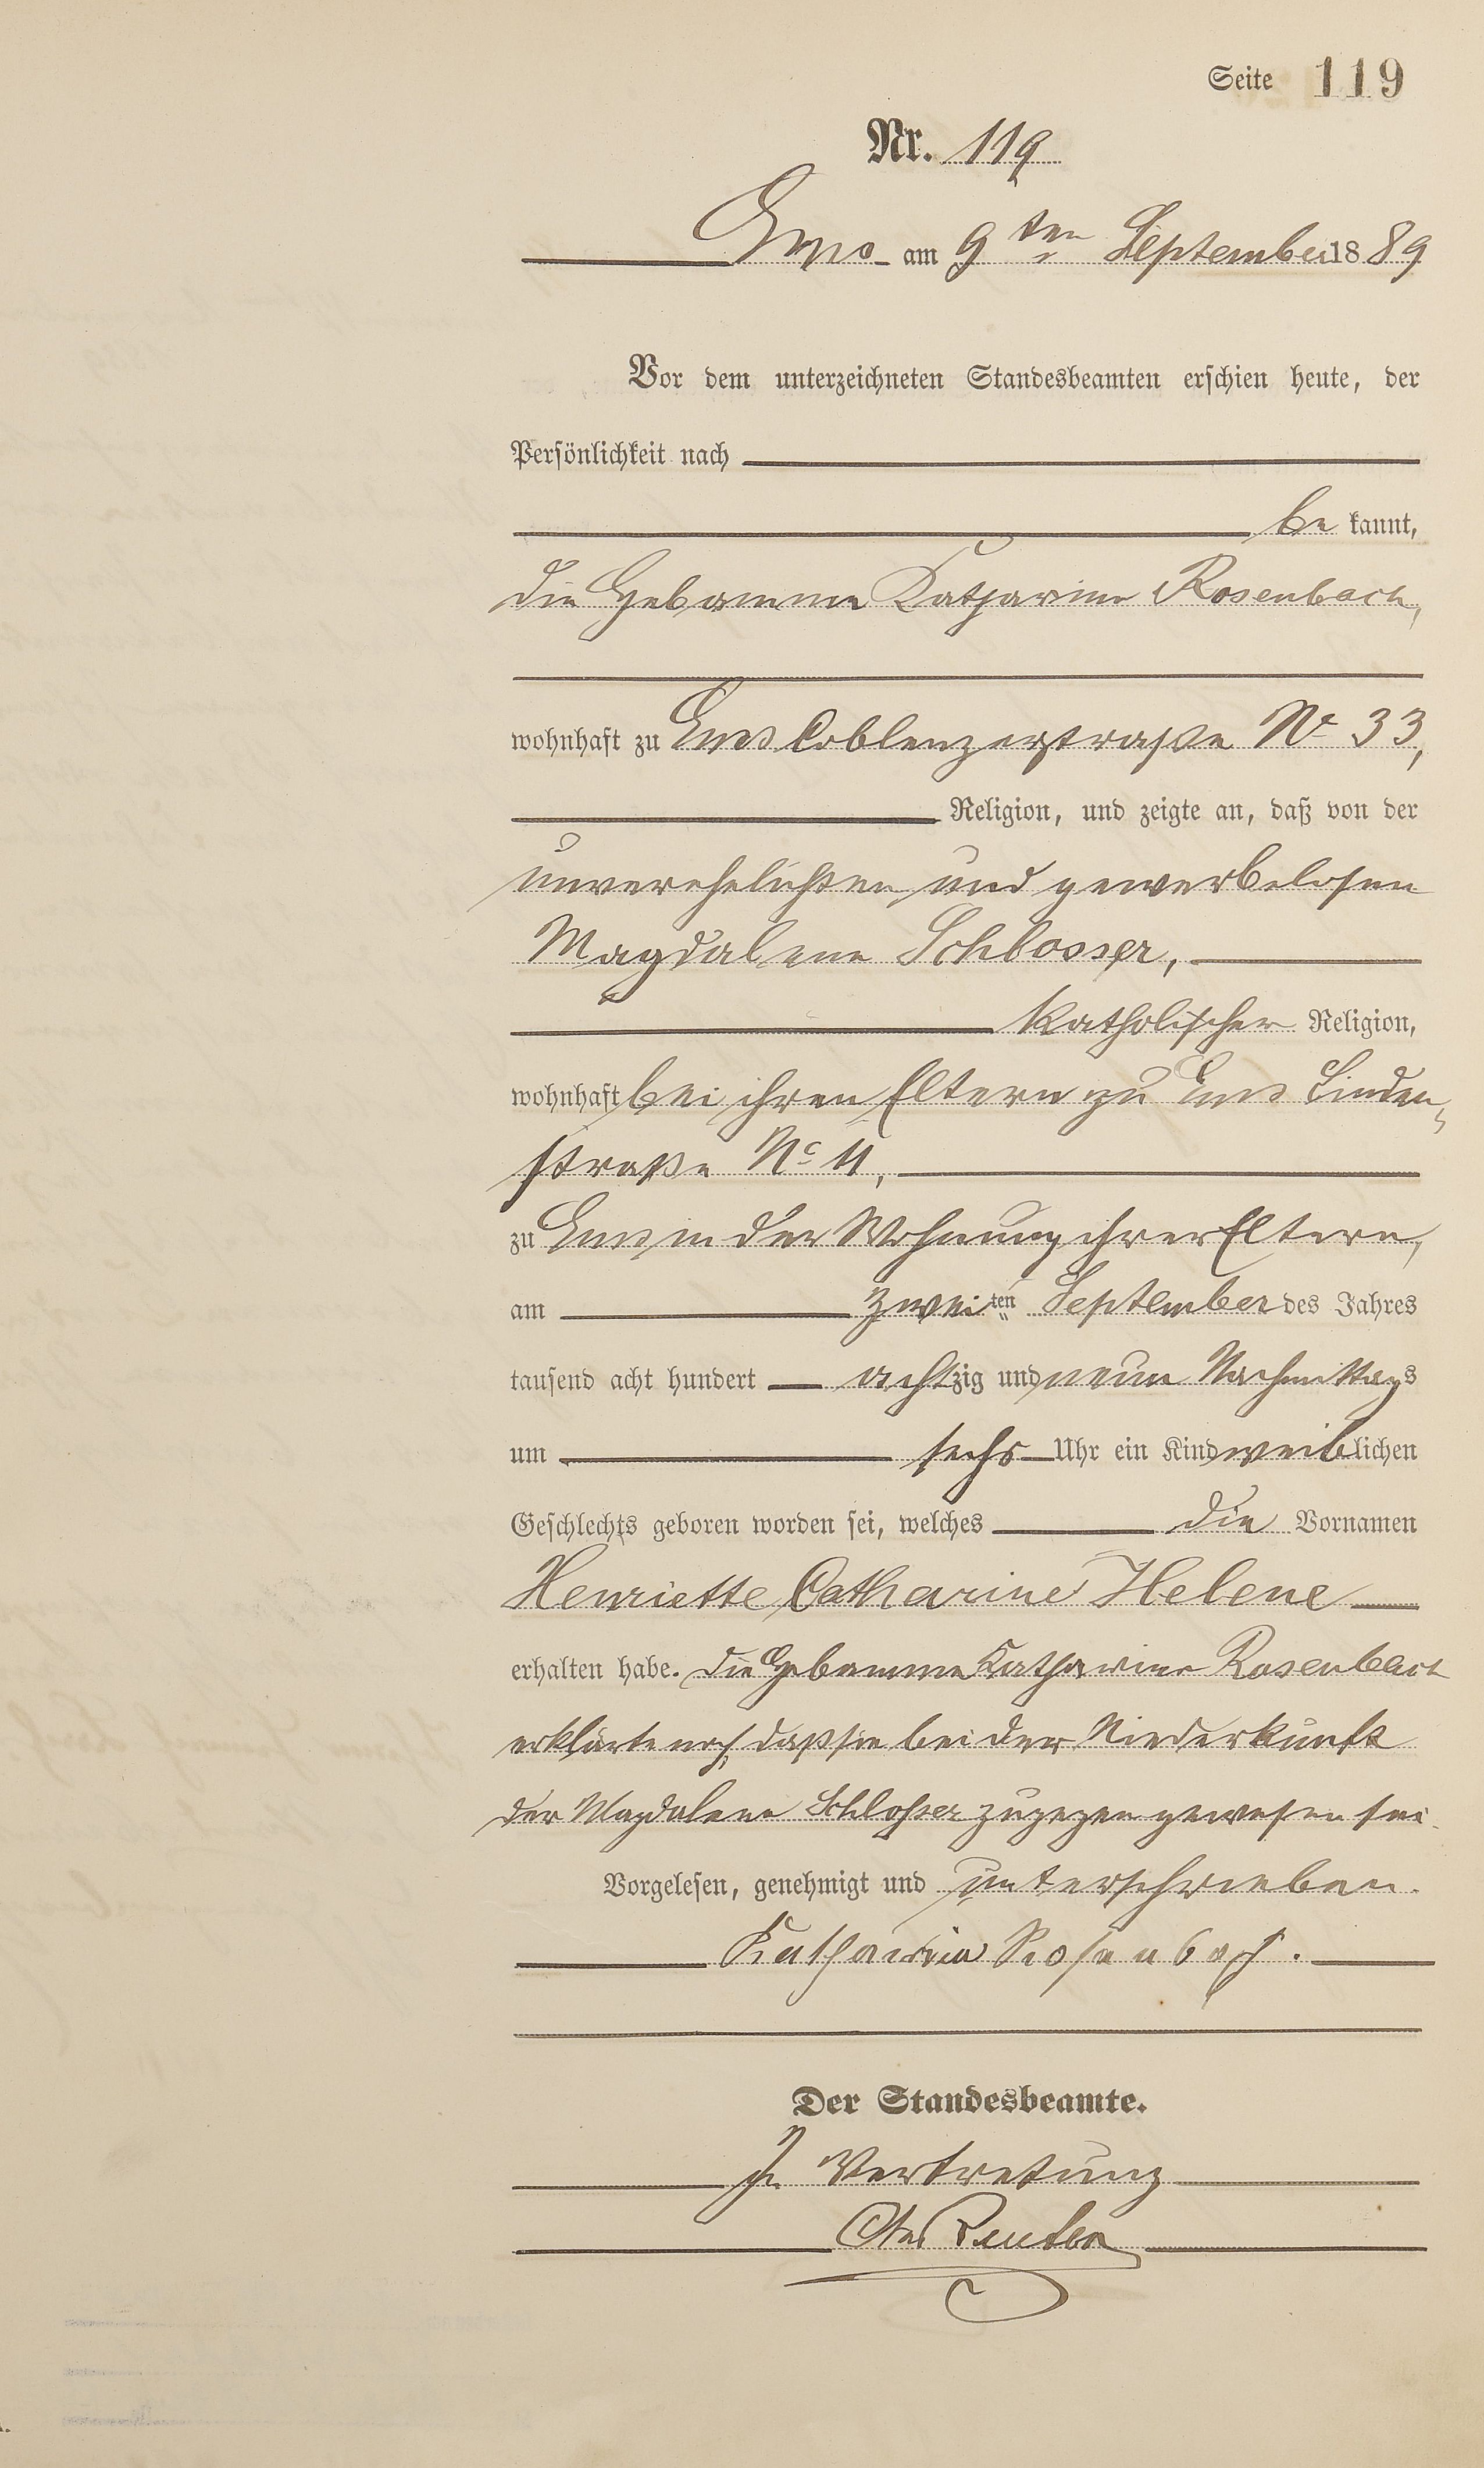 Seite 119
Nr. 119
Ems am 9ten September 1889
Vor dem unterzeichneten Standesbeamten erschien heute, der
Persönlichkeit nach
be kannt,
die Hebamme Katharine Rosenbach,
wohnhaft zu Ems Coblenzerstraße No 33,
Religion, und zeigte an, daß von der
unverehelichten und gewerbelosen
Magdalene Schlosser,
katholischer Religion,
wohnhaft bei ihren Eltern zu Ems Linden-
straße No 11,
zu Ems in der Wohnung ihrer Eltern,
am zweiten September des Jahres
tausend acht hundert achtzig und neun Nachmittags
um sechs Uhr ein Kind weiblichen
Geschlechts geboren worden sei, welches die Vornamen
Henriette Catharine Helene
erhalten habe. Die Hebamme Katharine Rosenbach
erklärte noch, daß sie bei der Niederkunft
der Magdalene Schlosser zugegen gewesen sei.
Vorgelesen, genehmigt und unterschrieben.
Katharina Rosenbach.
Der Standesbeamte.
In Vertretung